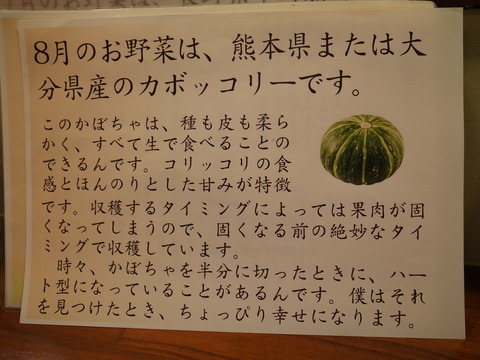 8月のお野菜は、熊本県または大
分県産のカボッコリーです。
このかぼちゃは、種も皮も柔ら
かく、すべて生で食べることの
できるんです。コリッコリの食
感とほんのりとした甘みが特徴
です。収穫するタイミングによっては果肉が固
くなってしまうので、固くなる前の絶妙なタイ
ミングで収穫しています。
時々、かぼちゃを半分に切ったときに、ハー
ト型になっていることがあるんです。僕はそれ
を見つけたとき、ちょっぴり幸せになります。